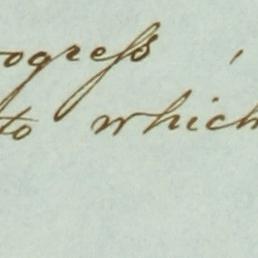 ogreſs ,
to which